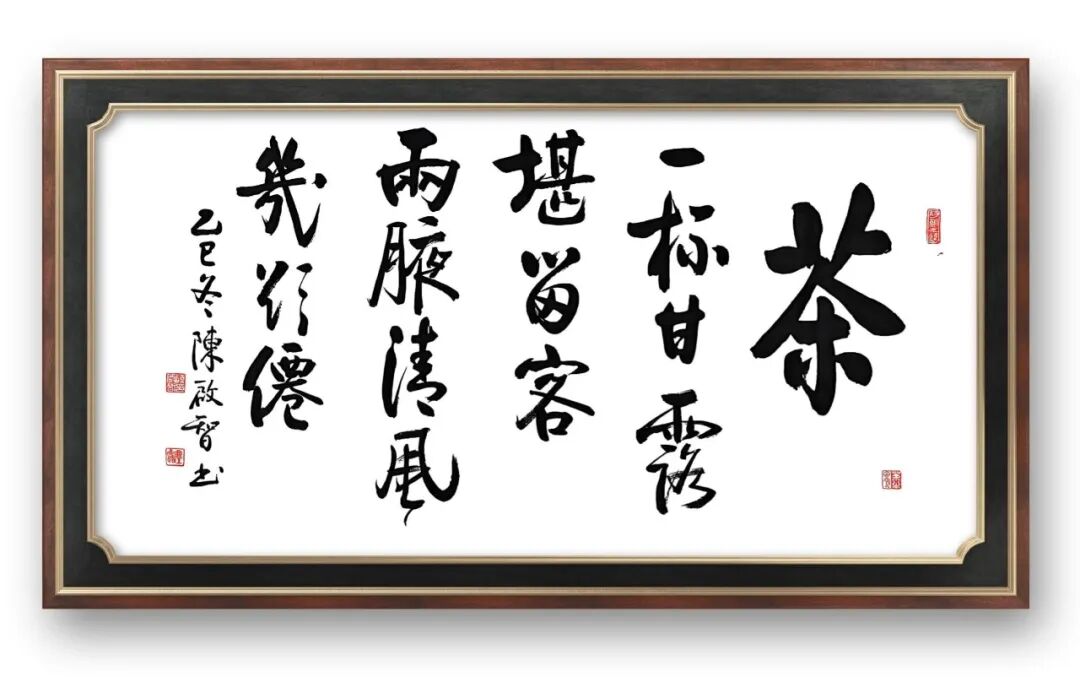 茶
一杯甘露
堪留客
兩腋清風
幾欲僊
乙巳冬陳啟智书